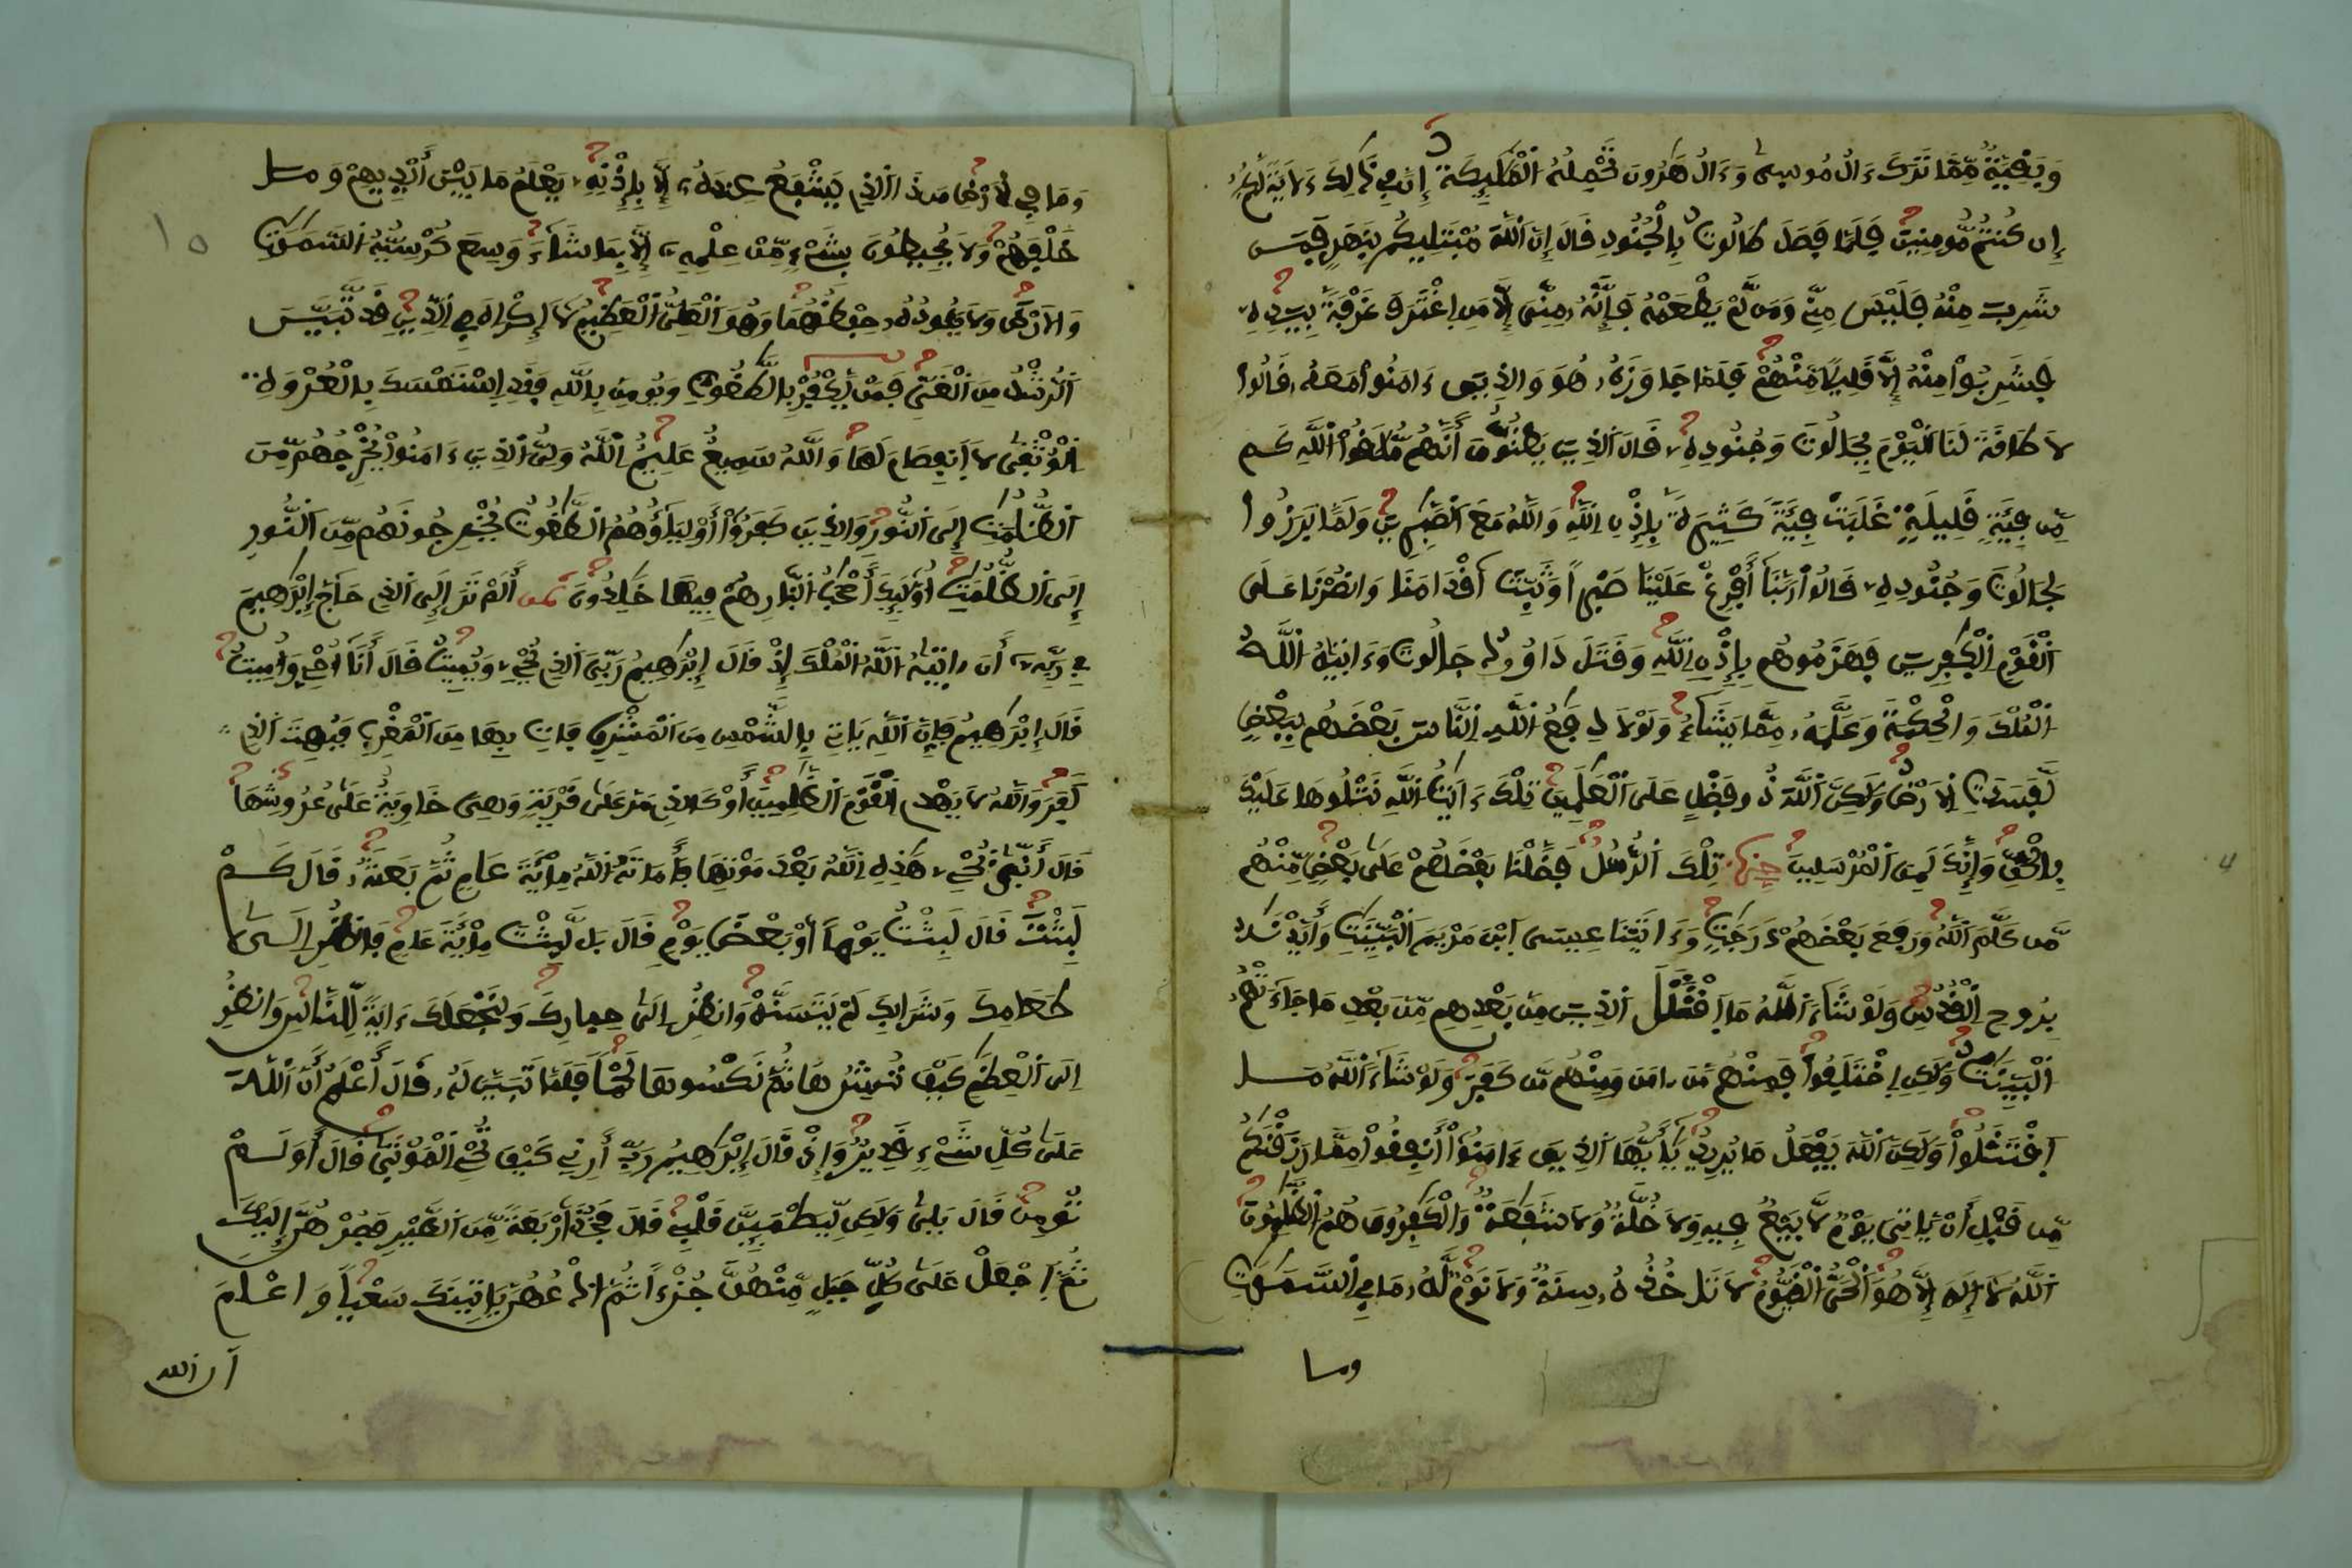 وَبَقِيَّةٌ مِّمَّا تَرَكَ ءَالُ مُوسِىٰ وَءَالُ هَٰرُونَ تَحْمِلُهُ اُ۬لْمَلَٰٓئِكَةُ إِنَّ فِے ذَٰلِكَ ءَلَايَةٗ لَّكُمُۥٓ
إِن كُنتُم مُّومِنِينَ فَلَمَّا فَصَلَ طَالُوتُ بِالْجُنُودِ قَالَ إِنَّ اَ۬للَّهَ مُبْتَلِيكُم بِنَهَرٍ فَمَن
شَرِبَ مِنْهُ فَلَيْسَ مِنِّے وَمَن لَّمْ يَطْعَمْهُ فَإِنَّهُۥ مِنِّىَ إِلَّا مَنِ اِ۪غْتَرَفَ غَرْفَةَۢ بِيَدِهِۦ
فَشَرِبُواْ مِنْهُ إِلَّا قَلِيلٗا مِّنْهُمْ فَلَمَّا جَاوَزَهُۥ هُوَ وَالذِينَ ءَامَنُواْ مَعَهُۥ قَالُواْ
لَا طَاقَةَ لَنَا اَ۬لْيَوْمَ بِجَالُوتَ وَجُنُودِهِۦ قَالَ اَ۬لذِينَ يَظُنُّونَ أَنَّهُم مُّلَٰقُواْ اُ۬للَّهِ كَم
مِّن فِئَةٖ قَلِيلَةٍ غَلَبَتْ فِئَةٗ كَثِيرَةَۢ بِإِذْنِ اِ۬للَّهِ وَاللَّهُ مَعَ اَ۬لصَّٰبِرِينَ وَلَمَّا بَرَزُواْ
لِجَالُوتَ وَجُنُودِهِۦ قَالُواْ رَبَّنَآ أَفْرِغْ عَلَيْنَا صَبْراٗ وَثَبِّتَ اَقْدَامَنَا وَانصُرْنَا عَلَى
اَ۬لْقَوْمِ اِ۬لْكَٰفِرِينَ فَهَزَمُوهُم بِإِذْنِ اِ۬للَّهِ وَقَتَلَ دَاوُۥدُ جَالُوتَ وَءَاتَيٰهُ اُ۬للَّهُ
اُ۬لْمُلْكَ وَالْحِكْمَةَ وَعَلَّمَهُۥ مِمَّا يَشَآءُ وَلَوْلَا دِفَٰعُ اُ۬للَّهِ اِ۬لنَّاسَ بَعْضَهُم بِبَعْضٖ
لَّفَسَدَتِ اِ۬لَارْضُ وَلَٰكِنَّ اَ۬للَّهَ ذُو فَضْلٍ عَلَى اَ۬لْعَٰلَمِينَ تِلْكَ ءَايَٰتُ اُ۬للَّهِ نَتْلُوهَا عَلَيْكَ
بِالْحَقِّ وَإِنَّكَ لَمِنَ اَ۬لْمُرْسَلِينَ حزب تِلْكَ اَ۬لرُّسُلُ فَضَّلْنَا بَعْضَهُمْ عَلَىٰ بَعْضٖ مِّنْهُم
مَّن كَلَّمَ اَ۬للَّهُ وَرَفَعَ بَعْضَهُمْ دَرَجَٰتٖ وَءَاتَيْنَا عِيسَى اَ۪بْنَ مَرْيَمَ اَ۬لْبَيِّنَٰتِ وَأَيَّدْنَٰهُ
بِرُوحِ اِ۬لْقُدُسِ وَلَوْ شَآءَ اَ۬للَّهُ مَا اَ۪قْتَتَلَ اَ۬لذِينَ مِنۢ بَعْدِهِم مِّنۢ بَعْدِ مَا جَآءَتْهُمُ
اُ۬لْبَيِّنَٰتُ وَلَٰكِنِ اِ۪خْتَلَفُواْ فَمِنْهُم مَّنَ اٰمَنَ وَمِنْهُم مَّن كَفَرَ وَلَوْ شَآءَ اَ۬للَّهُ مَا
اَ۪قْتَتَلُواْ وَلَٰكِنَّ اَ۬للَّهَ يَفْعَلُ مَا يُرِيدُ يَٰٓأَيُّهَا اَ۬لذِينَ ءَامَنُوٓاْ أَنفِقُواْ مِمَّا رَزَقْنَٰكُم
مِّن قَبْلِ أَنْ يَّاتِىَ يَوْمٞ لَّا بَيْعٞ فِيهِ وَلَا خُلَّةٞ وَلَا شَفَٰعَةٞ وَالْكَٰفِرُونَ هُمُ اُ۬لظَّٰلِمُونَ
اَ۬للَّهُ لَآ إِلَٰهَ إِلَّا هُوَ اَ۬لْحَىُّ اُ۬لْقَيُّومُ لَا تَاخُذُهُۥ سِنَةٞ وَلَا نَوْمٞ لَّهُۥ مَا فِے اِ۬لسَّمَٰوَٰتِ
وما
وَمَا فِے اِ۬لَارْضِ مَن ذَا اَ۬لذِے يَشْفَعُ عِندَهُۥٓ إِلَّا بِإِذْنِهِۦ يَعْلَمُ مَا بَيْنَ أَيْدِيهِمْ وَمَا
خَلْفَهُمْ وَلَا يُحِيطُونَ بِشَےْءٖ مِّنْ عِلْمِهِۦٓ إِلَّا بِمَا شَآءَ وَسِعَ كُرْسِيُّهُ اُ۬لسَّمَٰوَٰتِ
وَالَارْضَ وَلَا يَـُٔودُهُۥ حِفْظُهُمَا وَهُوَ اَ۬لْعَلِىُّ اُ۬لْعَظِيمُ لَآ إِكْرَاهَ فِے اِ۬لدِّينِ قَد تَّبَيَّنَ
اَ۬لرُّشْدُ مِنَ اَ۬لْغَىِّ فَمَنْ يَّكْفُرْ بِالطَّٰغُوتِ وَيُومِنۢ بِاللَّهِ فَقَدِ اِ۪سْتَمْسَكَ بِالْعُرْوَةِ
اِ۬لْوُثْقَىٰ لَا اَ۪نفِصَامَ لَهَا وَاللَّهُ سَمِيعٌ عَلِيمٌ اِ۬للَّهُ وَلِىُّ اُ۬لذِينَ ءَامَنُواْ يُخْرِجُهُم مِّنَ
اَ۬لظُّلُمَٰتِ إِلَى اَ۬لنُّورِ وَالذِينَ كَفَرُوٓاْ أَوْلِيَآؤُهُمُ اُ۬لطَّٰغُوتُ يُخْرِجُونَهُم مِّنَ اَ۬لنُّورِ
إِلَى اَ۬لظُّلُمَٰتِ أُوْلَٰٓئِكَ أَصْحَٰبُ اُ۬لنَّارِ هُمْ فِيهَا خَٰلِدُونَ ثمن أَلَمْ تَرَ إِلَى اَ۬لذِے حَآجَّ إِبْرَٰهِيمَ
فِے رَبِّهِۦٓ أَنَ اٰتَيٰهُ اُ۬للَّهُ اُ۬لْمُلْكَ إِذْ قَالَ إِبْرَٰهِيمُ رَبِّىَ اَ۬لذِے يُحْىِۦ وَيُمِيتُ قَالَ أَنَآ أُحْىِۦ وَأُمِيتُ
قَالَ إِبْرَٰهِيمُ فَإِنَّ اَ۬للَّهَ يَاتِے بِالشَّمْسِ مِنَ اَ۬لْمَشْرِقِ فَاتِ بِهَا مِنَ اَ۬لْمَغْرِبِ فَبُهِتَ اَ۬لذِے
كَفَرَ وَاللَّهُ لَا يَهْدِے اِ۬لْقَوْمَ اَ۬لظَّٰلِمِينَ أَوْ كَالذِے مَرَّ عَلَىٰ قَرْيَةٖ وَهِىَ خَاوِيَةٌ عَلَىٰ عُرُوشِهَا
قَالَ أَنَّىٰ يُحْىِۦ هَٰذِهِ اِ۬للَّهُ بَعْدَ مَوْتِهَا فَأَمَاتَهُ اُ۬للَّهُ مِاْئَةَ عَامٖ ثُمَّ بَعَثَهُۥ قَالَ كَمْ
لَبِثْتَ قَالَ لَبِثْتُ يَوْماً أَوْ بَعْضَ يَوْمٖ قَالَ بَل لَّبِثْتَ مِاْئَةَ عَامٖ فَانظُرِ اِلَىٰ
طَعَامِكَ وَشَرَابِكَ لَمْ يَتَسَنَّهْ وَانظُرِ اِلَىٰ حِمَارِكَ وَلِنَجْعَلَكَ ءَايَةٗ لِّلنَّاسِ وَانظُرِ
اِلَى اَ۬لْعِظَٰمِ كَيْفَ نُنشِرُهَا ثُمَّ نَكْسُوهَا لَحْماٗ فَلَمَّا تَبَيَّنَ لَهُۥ قَالَ أَعْلَمُ أَنَّ اَ۬للَّهَ
عَلَىٰ كُلِّ شَےْءٖ قَدِيرٞ وَإِذْ قَالَ إِبْرَٰهِيمُ رَبِّ أَرِنِے كَيْفَ تُحْىِ اِ۬لْمَوْتَىٰ قَالَ أَوَلَمْ
تُومِن قَالَ بَلَىٰ وَلَٰكِن لِّيَطْمَئِنَّ قَلْبِے قَالَ فَخُذَ اَرْبَعَةٗ مِّنَ اَ۬لطَّيْرِ فَصُرْهُنَّ إِلَيْكَ
ثُمَّ اَ۪جْعَلْ عَلَىٰ كُلِّ جَبَلٖ مِّنْهُنَّ جُزْءاٗ ثُمَّ اَ۟دْعُهُنَّ يَاتِينَكَ سَعْياٗ وَاعْلَمَ
أن الله
١٥